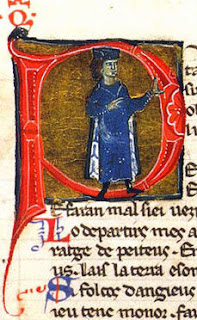 ta
E
e faran mal siei uezi
Lo departirs mes a
ratge de peiteus. E
us. lais la terra eson
Si folcos dangieus
ieu tenc monor. fa